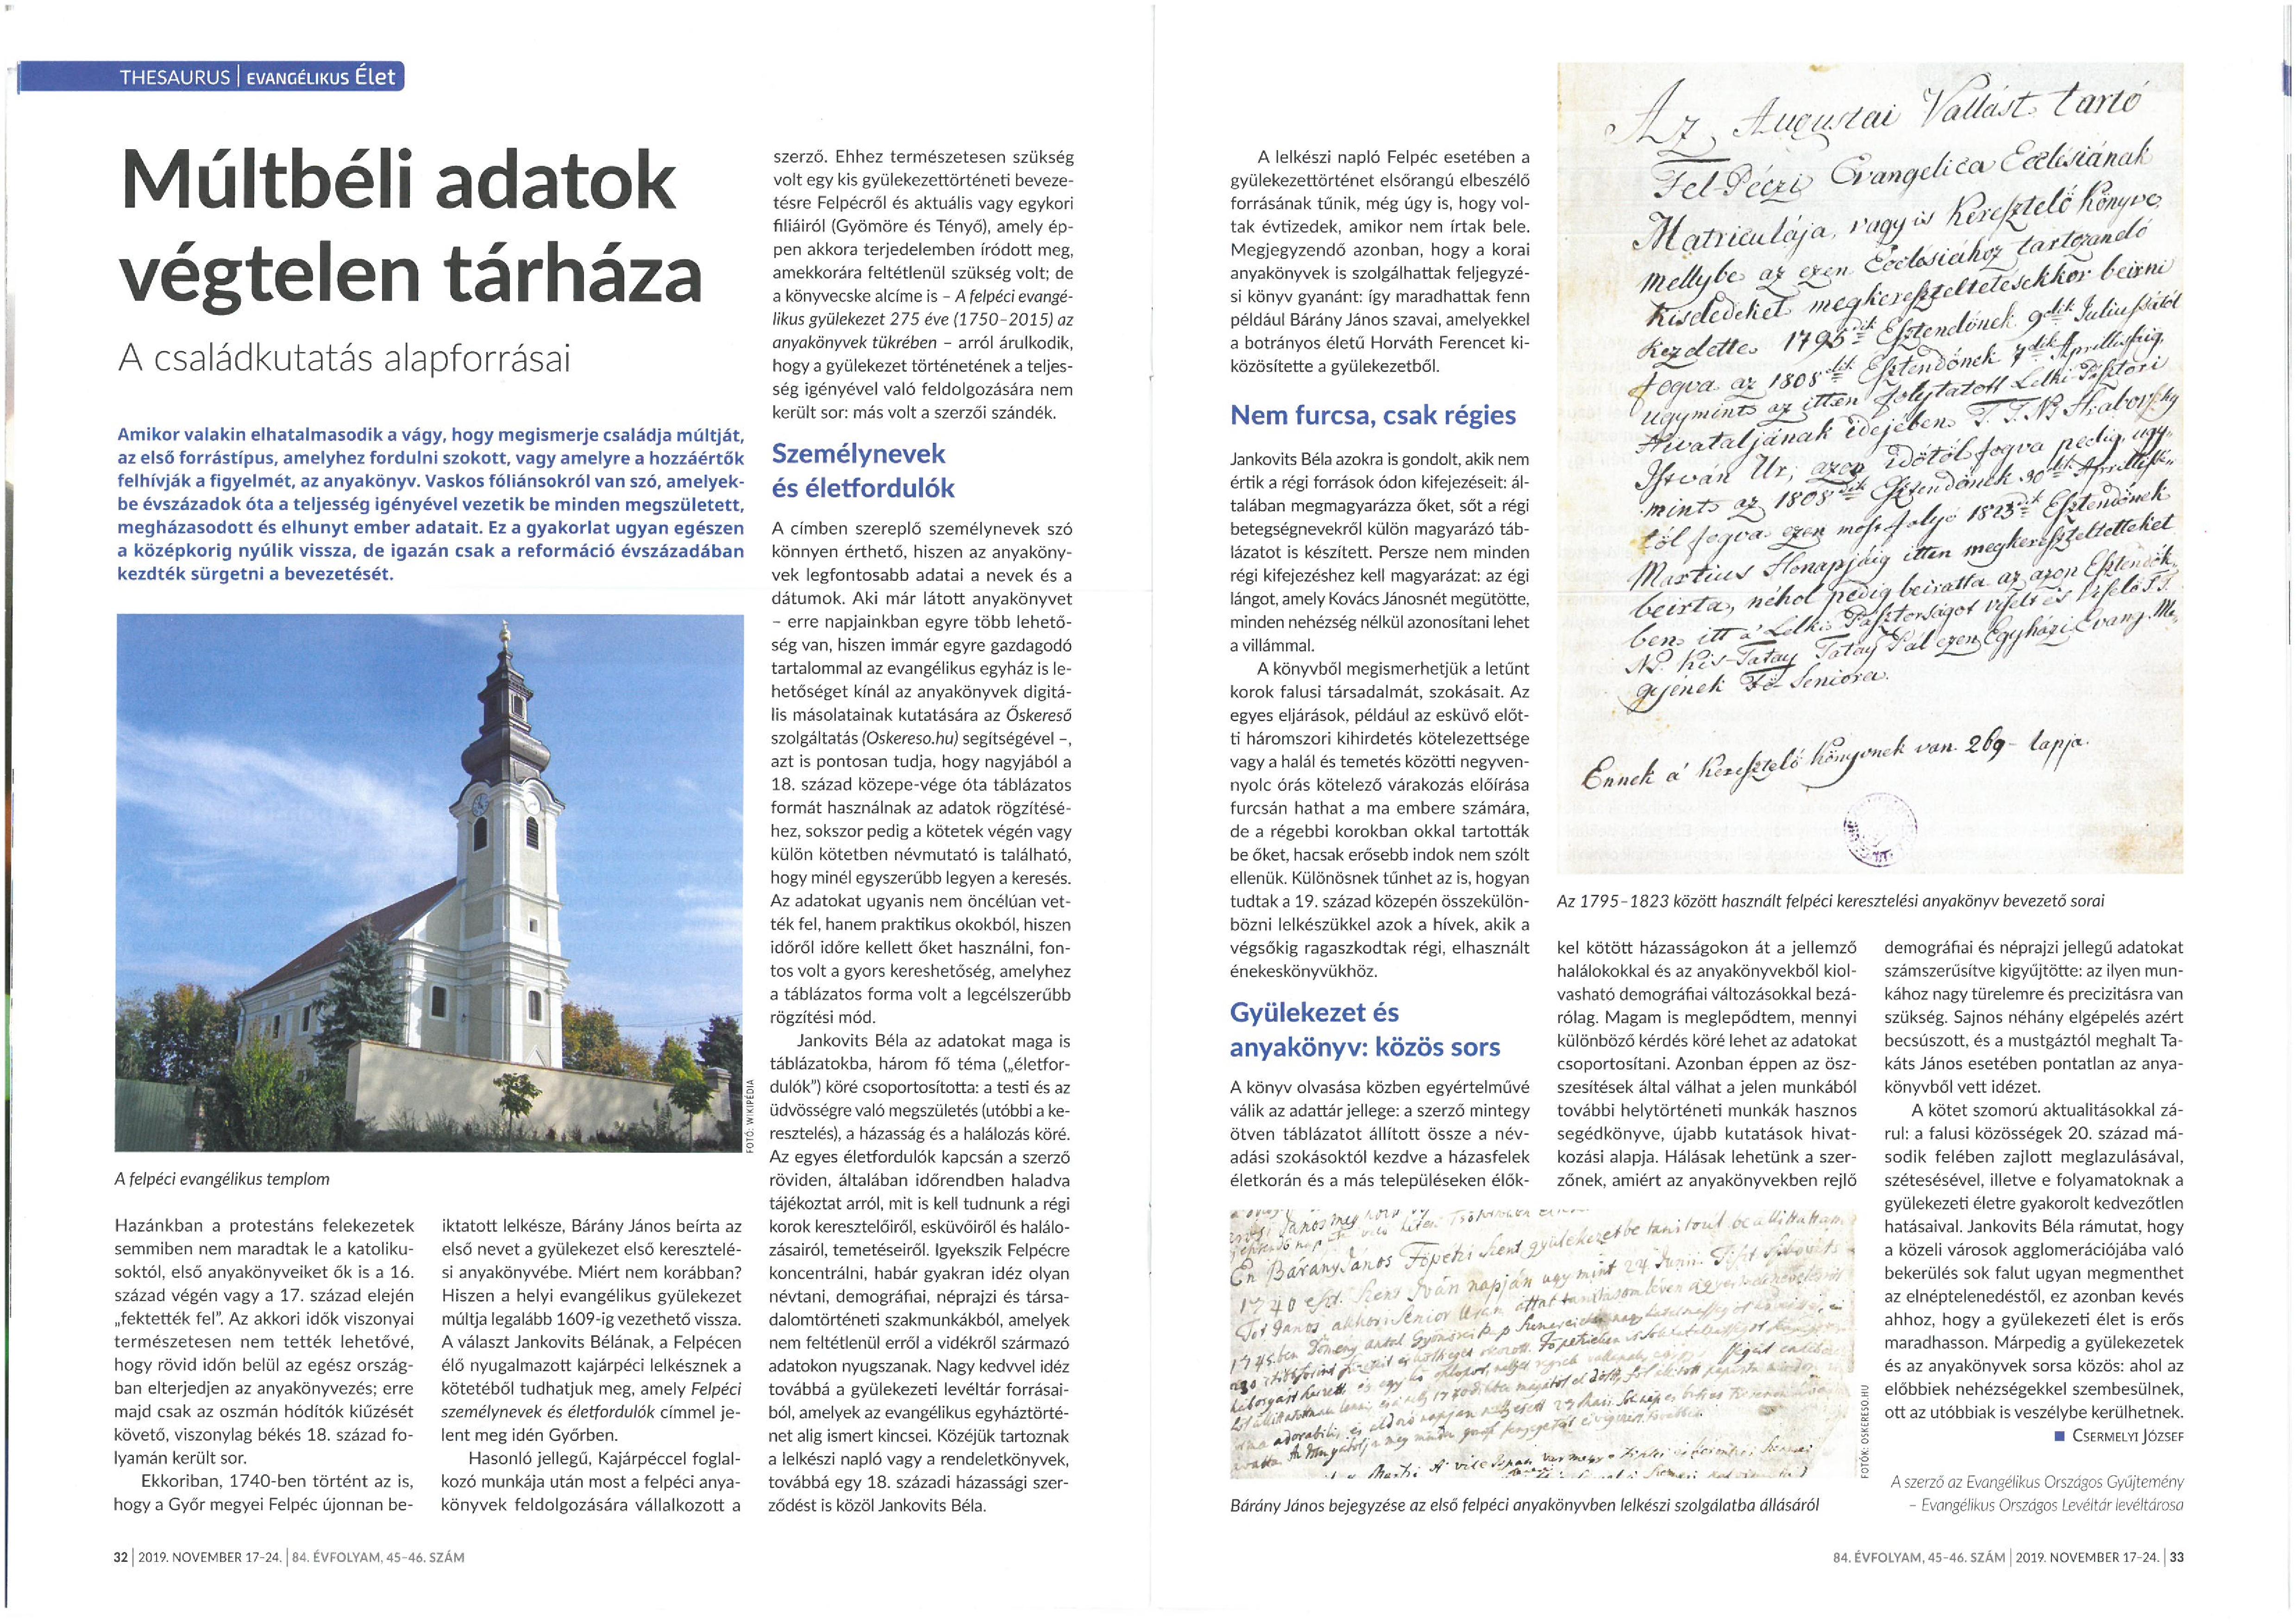 THESAURUS | EVANGÉLIKUS Élet
Múltbéli adatok
végtelen tárháza
A családkutatás alapforrásai
Amikor valakin elhatalmasodik a vágy, hogy megismerje családja múltját,
az első forrástípus, amelyhez fordulni szokott, vagy amelyre a hozzáértők
felhívják a figyelmét, az anyakönyv. Vaskos fóliánsokról van szó, amelyek-
be évszázadok óta a teljesség igényével vezetik be minden megszületett,
megházasodott és elhunyt ember adatait. Ez a gyakorlat ugyan egészen
a középkorig nyúlik vissza, de igazán csak a reformáció évszázadában
kezdték sürgetni a bevezetését.
FOTÓ: WIKIPÉDIA
A felpéci evangélikus templom
Hazánkban a protestáns felekezetek
semmiben nem maradtak le a katoliku-
soktól, első anyakönyveiket ők is a 16.
század végén vagy a 17. század elején
„fektették fel”. Az akkori idők viszonyai
természetesen nem tették lehetővé,
hogy rövid időn belül az egész ország-
ban elterjedjen az anyakönyvezés; erre
majd csak az oszmán hódítók kiűzését
követő, viszonylag békés 18. század fo-
lyamán került sor.
Ekkoriban, 1740-ben történt az is,
hogy a Győr megyei Felpéc újonnan be-
iktatott lelkésze, Bárány János beírta az
első nevet a gyülekezet első keresztelé-
si anyakönyvébe. Miért nem korábban?
Hiszen a helyi evangélikus gyülekezet
múltja legalább 1609-ig vezethető vissza.
A választ Jankovits Bélának, a Felpécen
élő nyugalmazott kajárpéci lelkésznek a
kötetéből tudhatjuk meg, amely Felpéci
személynevek és életfordulók címmel je-
lent meg idén Győrben.
Hasonló jellegű, Kajárpéccel foglal-
kozó munkája után most a felpéci anya-
könyvek feldolgozására vállalkozott a
szerző. Ehhez természetesen szükség
volt egy kis gyülekezettörténeti beveze-
tésre Felpécről és aktuális vagy egykori
filiáiról (Gyömöre és Tényő), amely ép-
pen akkora terjedelemben íródott meg,
amekkorára feltétlenül szükség volt; de
a könyvecske alcíme is – A felpéci evangé-
likus gyülekezet 275 éve (1750–2015) az
anyakönyvek tükrében – arról árulkodik,
hogy a gyülekezet történetének a teljes-
ség igényével való feldolgozására nem
került sor: más volt a szerzői szándék.
Személynevek
és életfordulók
A címben szereplő személynevek szó
könnyen érthető, hiszen az anyaköny-
vek legfontosabb adatai a nevek és a
dátumok. Aki már látott anyakönyvet
– erre napjainkban egyre több lehető-
ség van, hiszen immár egyre gazdagodó
tartalommal az evangélikus egyház is le-
hetőséget kínál az anyakönyvek digitá-
lis másolatainak kutatására az Őskereső
szolgáltatás (Oskereso.hu) segítségével –,
azt is pontosan tudja, hogy nagyjából a
18. század közepe-vége óta táblázatos
formát használnak az adatok rögzítésé-
hez, sokszor pedig a kötetek végén vagy
külön kötetben névmutató is található,
hogy minél egyszerűbb legyen a keresés.
Az adatokat ugyanis nem öncélúan vet-
ték fel, hanem praktikus okokból, hiszen
időről időre kellett őket használni, fon-
tos volt a gyors kereshetőség, amelyhez
a táblázatos forma volt a legcélszerűbb
rögzítési mód.
Jankovits Béla az adatokat maga is
táblázatokba, három fő téma („életfor-
dulók”) köré csoportosította: a testi és az
üdvösségre való megszületés (utóbbi a ke-
resztelés), a házasság és a halálozás köré.
Az egyes életfordulók kapcsán a szerző
röviden, általában időrendben haladva
tájékoztat arról, mit is kell tudnunk a régi
korok keresztelőiről, esküvőiről és halálo-
zásairól, temetéseiről. Igyekszik Felpécre
koncentrálni, habár gyakran idéz olyan
névtani, demográfiai, néprajzi és társa-
dalomtörténeti szakmunkákból, amelyek
nem feltétlenül erről a vidékről származó
adatokon nyugszanak. Nagy kedvvel idéz
továbbá a gyülekezeti levéltár forrásai-
ból, amelyek az evangélikus egyháztörté-
net alig ismert kincsei. Közéjük tartoznak
a lelkészi napló vagy a rendeletkönyvek,
továbbá egy 18. századi házassági szer-
ződést is közöl Jankovits Béla.
32 | 2019. NOVEMBER 17–24. | 84. ÉVFOLYAM, 45–46. SZÁM
A lelkészi napló Felpéc esetében a
gyülekezettörténet elsőrangú elbeszélő
forrásának tűnik, még úgy is, hogy vol-
tak évtizedek, amikor nem írtak bele.
Megjegyzendő azonban, hogy a korai
anyakönyvek is szolgálhattak feljegyzé-
si könyv gyanánt: így maradhattak fenn
például Bárány János szavai, amelyekkel
a botrányos életű Horváth Ferencet ki-
közösítette a gyülekezetből.
Nem furcsa, csak régies
Jankovits Béla azokra is gondolt, akik nem
értik a régi források ódon kifejezéseit: ál-
talában megmagyarázza őket, sőt a régi
betegségnevekről külön magyarázó táb-
lázatot is készített. Persze nem minden
régi kifejezéshez kell magyarázat: az égi
lángot, amely Kovács Jánosnét megütötte,
minden nehézség nélkül azonosítani lehet
a villámmal.
A könyvből megismerhetjük a letűnt
korok falusi társadalmát, szokásait. Az
egyes eljárások, például az esküvő előt-
ti háromszori kihirdetés kötelezettsége
vagy a halál és temetés közötti negyven-
nyolc órás kötelező várakozás előírása
furcsán hathat a ma embere számára,
de a régebbi korokban okkal tartották
be őket, hacsak erősebb indok nem szólt
ellenük. Különösnek tűnhet az is, hogyan
tudtak a 19. század közepén összekülön-
bözni lelkészükkel azok a hívek, akik a
végsőkig ragaszkodtak régi, elhasznált
énekeskönyvükhöz.
Gyülekezet és
anyakönyv: közös sors
A könyv olvasása közben egyértelművé
válik az adattár jellege: a szerző mintegy
ötven táblázatot állított össze a név-
adási szokásoktól kezdve a házasfelek
életkorán és a más településeken élők-
Az Augustai Vallást tartó
Fel-Péczi Evangelica Ecclésiának
Matriculája, vagy is Keresztelő Könyve
mellybe az ezen Ecclesiához tartozandó
kisdedeket megkereszteltetésekkor beirni
kezdette 1795dik Esztendőnek 9dik Juliussától
fogva az 1808dik Esztendőnek 7dik Aprillisig,
ugymint az itten folytatott Lelki Pásztori
Hivataljának idejében T. T. N. Hrabovszky
István Ur; azon időtől fogva pedig, ugy-
mint az 1808dik Esztendőnek 30dik Aprillisé-
től fogva ezen most folyó 1823dik Esztendőnek
Martius Honapjáig itten megkereszteltetteket
beirta, néhol pedig beiratta az azon Esztendők-
ben itt a' Lelki Pásztorságot viselt és viselő T. T.
N. P. Kis-Tatay Tatay Pál ezen Egyházi Evang. Me-
gyének Fő Seniora.
Ennek a' Keresztelő Könyvnek van 269 lapja.
Az 1795–1823 között használt felpéci keresztelési anyakönyv bevezető sorai
kel kötött házasságokon át a jellemző
halálokokkal és az anyakönyvekből kiol-
vasható demográfiai változásokkal bezá-
rólag. Magam is meglepődtem, mennyi
különböző kérdés köré lehet az adatokat
csoportosítani. Azonban éppen az ösz-
szesítések által válhat a jelen munkából
további helytörténeti munkák hasznos
segédkönyve, újabb kutatások hivat-
kozási alapja. Hálásak lehetünk a szer-
zőnek, amiért az anyakönyvekben rejlő
demográfiai és néprajzi jellegű adatokat
számszerűsítve kigyűjtötte: az ilyen mun-
kához nagy türelemre és precizitásra van
szükség. Sajnos néhány elgépelés azért
becsúszott, és a mustgáztól meghalt Ta-
káts János esetében pontatlan az anya-
könyvből vett idézet.
A kötet szomorú aktualitásokkal zá-
rul: a falusi közösségek 20. század má-
sodik felében zajlott meglazulásával,
szétesésével, illetve e folyamatoknak a
gyülekezeti életre gyakorolt kedvezőtlen
hatásaival. Jankovits Béla rámutat, hogy
a közeli városok agglomerációjába való
bekerülés sok falut ugyan megmenthet
az elnéptelenedéstől, ez azonban kevés
ahhoz, hogy a gyülekezeti élet is erős
maradhasson. Márpedig a gyülekezetek
és az anyakönyvek sorsa közös: ahol az
előbbiek nehézségekkel szembesülnek,
ott az utóbbiak is veszélybe kerülhetnek.
■ CSERMELYI JÓZSEF
A szerző az Evangélikus Országos Gyűjtemény
– Evangélikus Országos Levéltár levéltárosa
En Bárány János Főpeczi Szent gyülekezetbe tanitoul beállittattam
1740 eszt. Szent Iván napján ugy mint 24 Juni.
FOTÓK: OSKERESO.HU
Bárány János bejegyzése az első felpéci anyakönyvben lelkészi szolgálatba állásáról
84. ÉVFOLYAM, 45–46. SZÁM | 2019. NOVEMBER 17–24. | 33